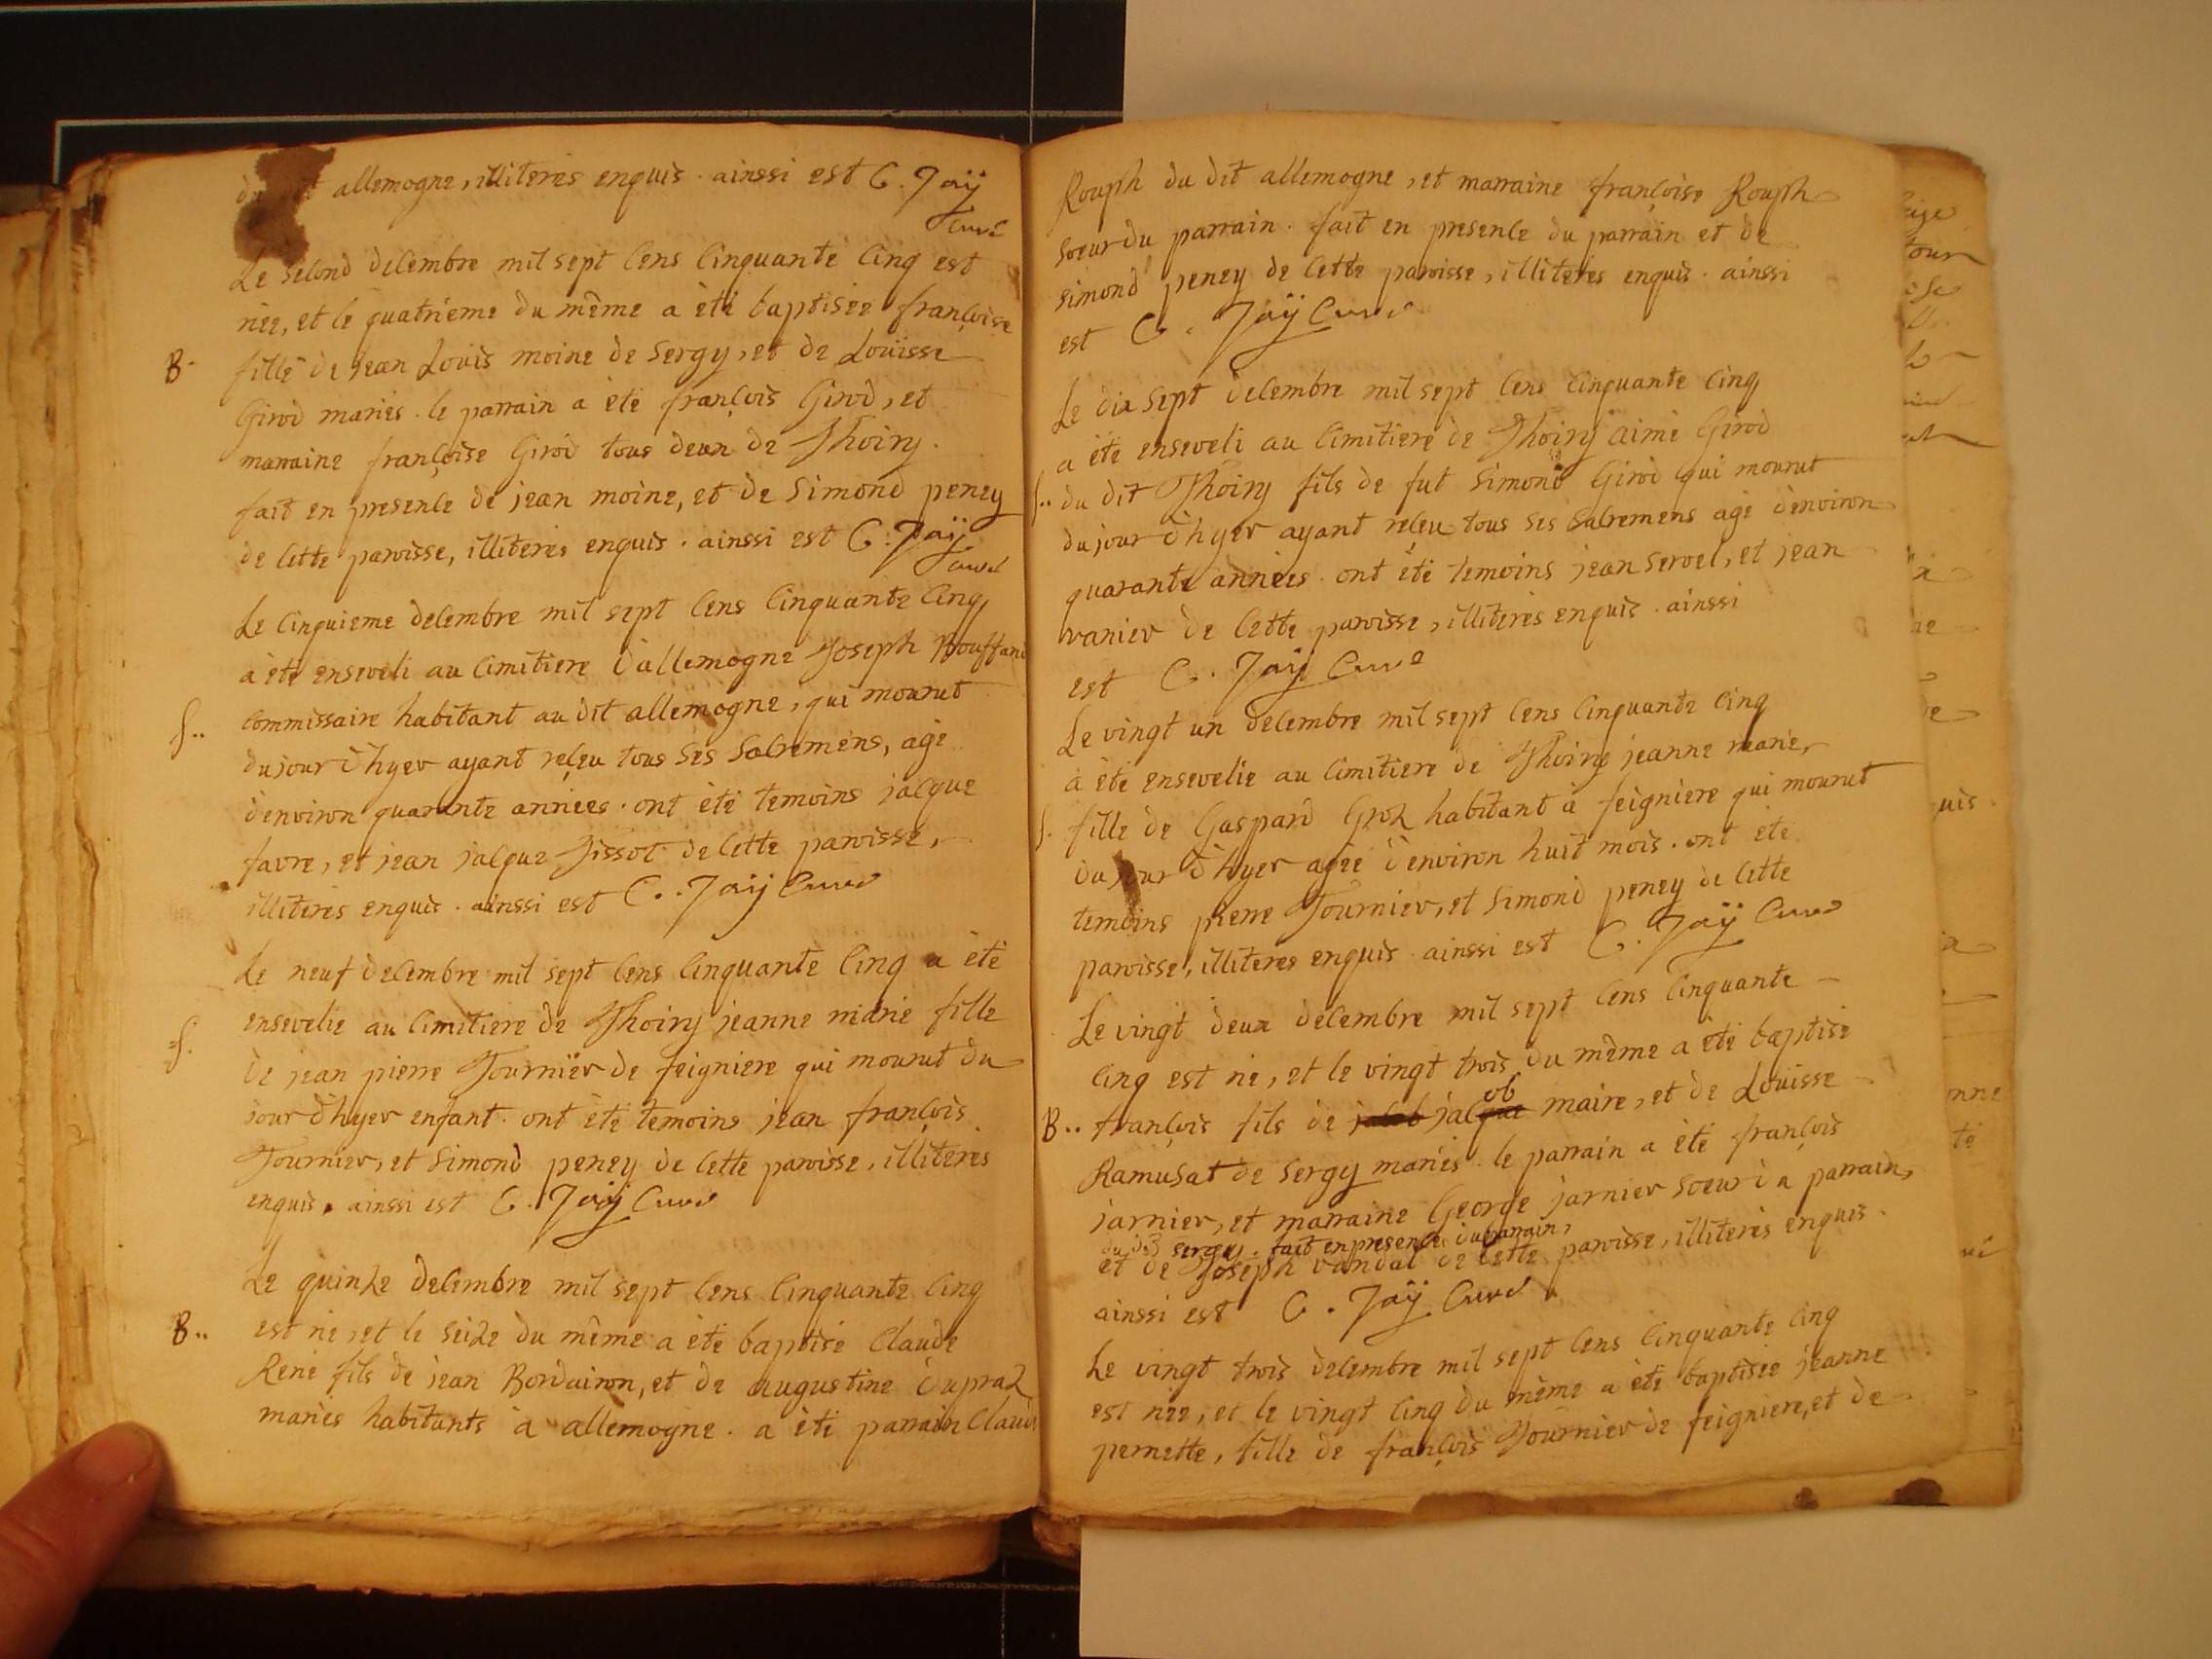 dudit allemogne, illiterés enquis. ainssi est C. Jaÿ
Curé
Le second decembre mil sept cens cinquante cinq est
née, et le quatriéme du même a été baptisée françoise
B. fille de jean Louis moine de Sergy, et de Loüisse
Girod mariés. le parrain a été françois Girod, et
marraine françoise Girod tous deux de Thoiry.
fait en presence de jean moine, et de Simond peney
de cette paroisse, illiterés enquis. ainssi est C. Jaÿ
curé
Le cinquieme decembre mil sept cens cinquante cinq
a été enseveli au cimitiere d'allemogne Joseph
S.. commissaire habitant au dit allemogne, qui mourut
du jour d'hyer ayant reçeu tous ses sacremens, agé
d'environ quarante années. ont été temoins jacque
favre, et jean jacque Tissot de cette paroisse,
illiterés enquis. ainssi est C. Jaÿ Curé
Le neuf decembre mil sept cens cinquante cinq a été
ensevelie au cimitiere de Thoiry jeanne marie fille
S. de jean pierre Tournier de feigniere qui mourut du
jour d'hyer enfant. ont été temoins jean françois
Tournier, et Simond peney de cette paroisse, illiterés
enquis. ainssi est C. Jaÿ Curé
Le quinze decembre mil sept cens cinquante cinq
B.. est né, et le seize du même a été baptisé Claude
René fils de jean Bordairon, et de augustine dupraz
mariés habitants à allemogne. a été parrain Claude
Rouph du dit allemogne, et marraine françoise Rouph
soeur du parrain. fait en presence du parrain et de
simond peney de cette paroisse, illiterés enquis. ainssi
est C. Jaÿ Curé
Le dix sept decembre mil sept cens cinquante cinq
a été enseveli au cimitiere de Thoiry aimé Girod
S.. du dit Thoiry fils de fut Simond Girod qui mourut
du jour d'hyer ayant reçeu tous ses sacremens agé d'environ
quarante années. ont été temoins jean servel, et jean
vanier de cette paroisse, illiterés enquis. ainssi
est C. Jaÿ Curé
Le vingt un decembre mil sept cens cinquante cinq
a été ensevelie au cimitiere de Thoiry jeanne marie,
S. fille de Gaspard Groz habitant à feigniere qui mourut
du jour d'hyer agée d'environ huit mois. ont été
temoins pierre Tournier, et Simond peney de cette
paroisse, illiterés enquis. ainssi est C. Jaÿ Curé
Le vingt deux decembre mil sept cens cinquante
cinq est né, et le vingt trois du même a été baptisé
ob
B.. françois fils de jacob jacque maire, et de Louisse
Ramusat de Sergy mariés. le parrain a été françois
jarnier, et marraine George jarnier soeur du parrain,
du dit Sergy. fait en presence du parrain,
et de Joseph vandal de cette paroisse, illiterés enquis.
ainssi est C. Jaÿ Curé
Le vingt trois decembre mil sept cens cinquante cinq
est née, et le vingt cinq du même a été baptisée jeanne
pernette, fille de françois Tournier de feigniere, et de